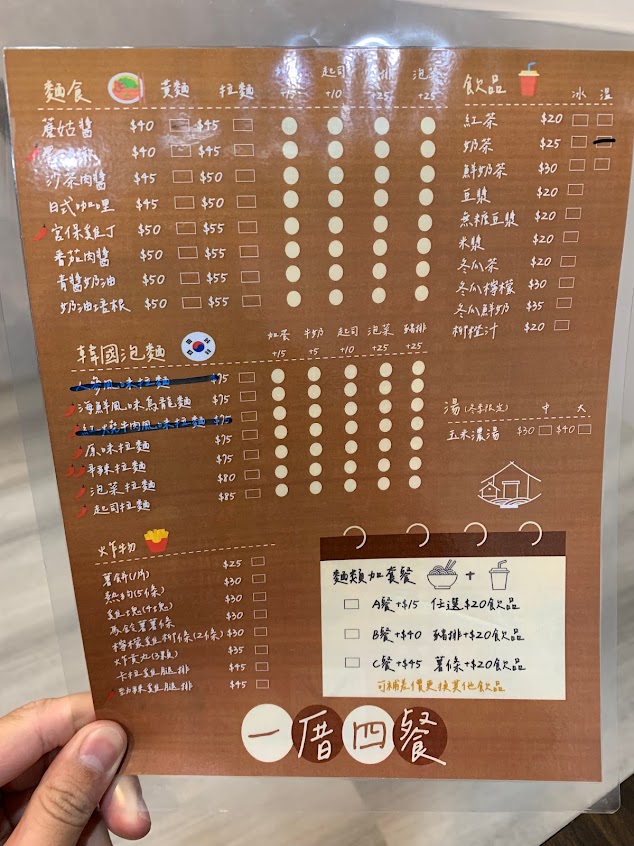 麵食 黃麵 拉麵 起司 泡菜
+15 +10 +25 +25
蘑菇醬 $40 $45
$40 $45
沙茶肉醬 $45 $50
日式咖哩 $45 $50
宮保雞丁 $50 $55
番茄肉醬 $50 $55
青醬奶油 $50 $55
奶油培根 $50 $55
飲品 冰 溫
紅茶 $20
奶茶 $25
鮮奶茶 $30
豆漿 $20
無糖豆漿 $20
米漿 $20
冬瓜茶 $20
冬瓜檸檬 $30
冬瓜鮮奶 $35
柳橙汁 $20
韓國泡麵 加蛋 牛奶 起司 泡菜 豬排
+15 +5 +10 +25 +25
風味拉麵 $75
海鮮風味烏龍麵 $75
紅燒牛肉風味拉麵 $75
原味拉麵 $75
辛辣拉麵 $75
泡菜拉麵 $80
起司拉麵 $85
湯(冬季限定) 中 大
玉米濃湯 $30 $40
炸物
薯餅(1片) $25
熱狗(5條) $30
雞塊(4塊) $30
馬鈴薯薯條 $30
檸檬雞柳條(2條) $30
炸黃丸(3顆) $35
卡拉雞腿排 $45
勁辣雞腿排 $45
麵類加套餐 +
A餐+$15 任選$20飲品
B餐+$40 豬排+$20飲品
C餐+$45 薯條+$20飲品
可補差價更換其他飲品
一厝四餐